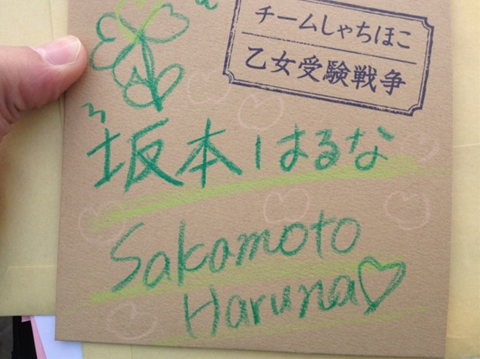 チームしゃちほこ
乙女受験戦争
坂本はるな
Sakamoto
Haruna♡